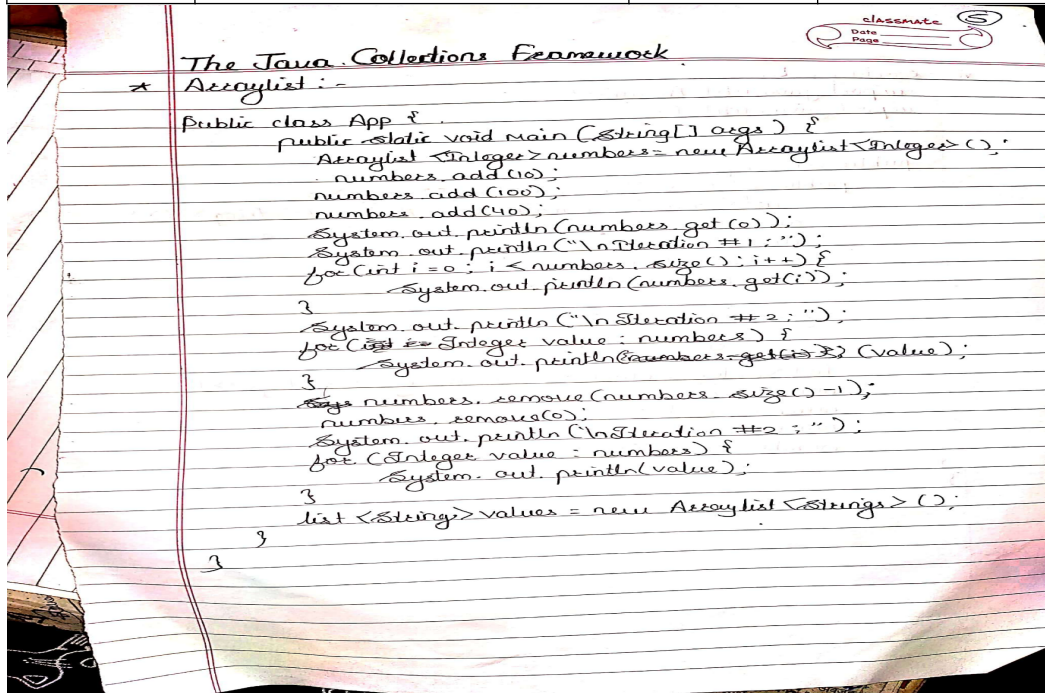 classmate 5
Date
Page
The Java Collections Framework
* Arraylist :-
Public class App {
public static void main (String[] args) {
Arraylist <Integer> numbers = new Arraylist <Integer> ();
numbers. add (10);
numbers. add (100);
numbers. add (40);
System. out. println (numbers. get (0));
System. out. println ("\n Iteration #1 : ");
for (int i = 0 ; i < numbers. size() ; i++) {
System. out. println (numbers. get(i));
}
System. out. println ("\n Iteration #2 : ");
for (int i = Integer value : numbers) {
System. out. println (numbers. get(i)); (value);
}
Sys numbers. remove (numbers. size() -1);
numbers. remove(0);
System. out. println ("\n Iteration #2 : ");
for (Integer value : numbers) {
System. out. println(value);
}
list <String> values = new Arraylist <Strings> ();
}
}